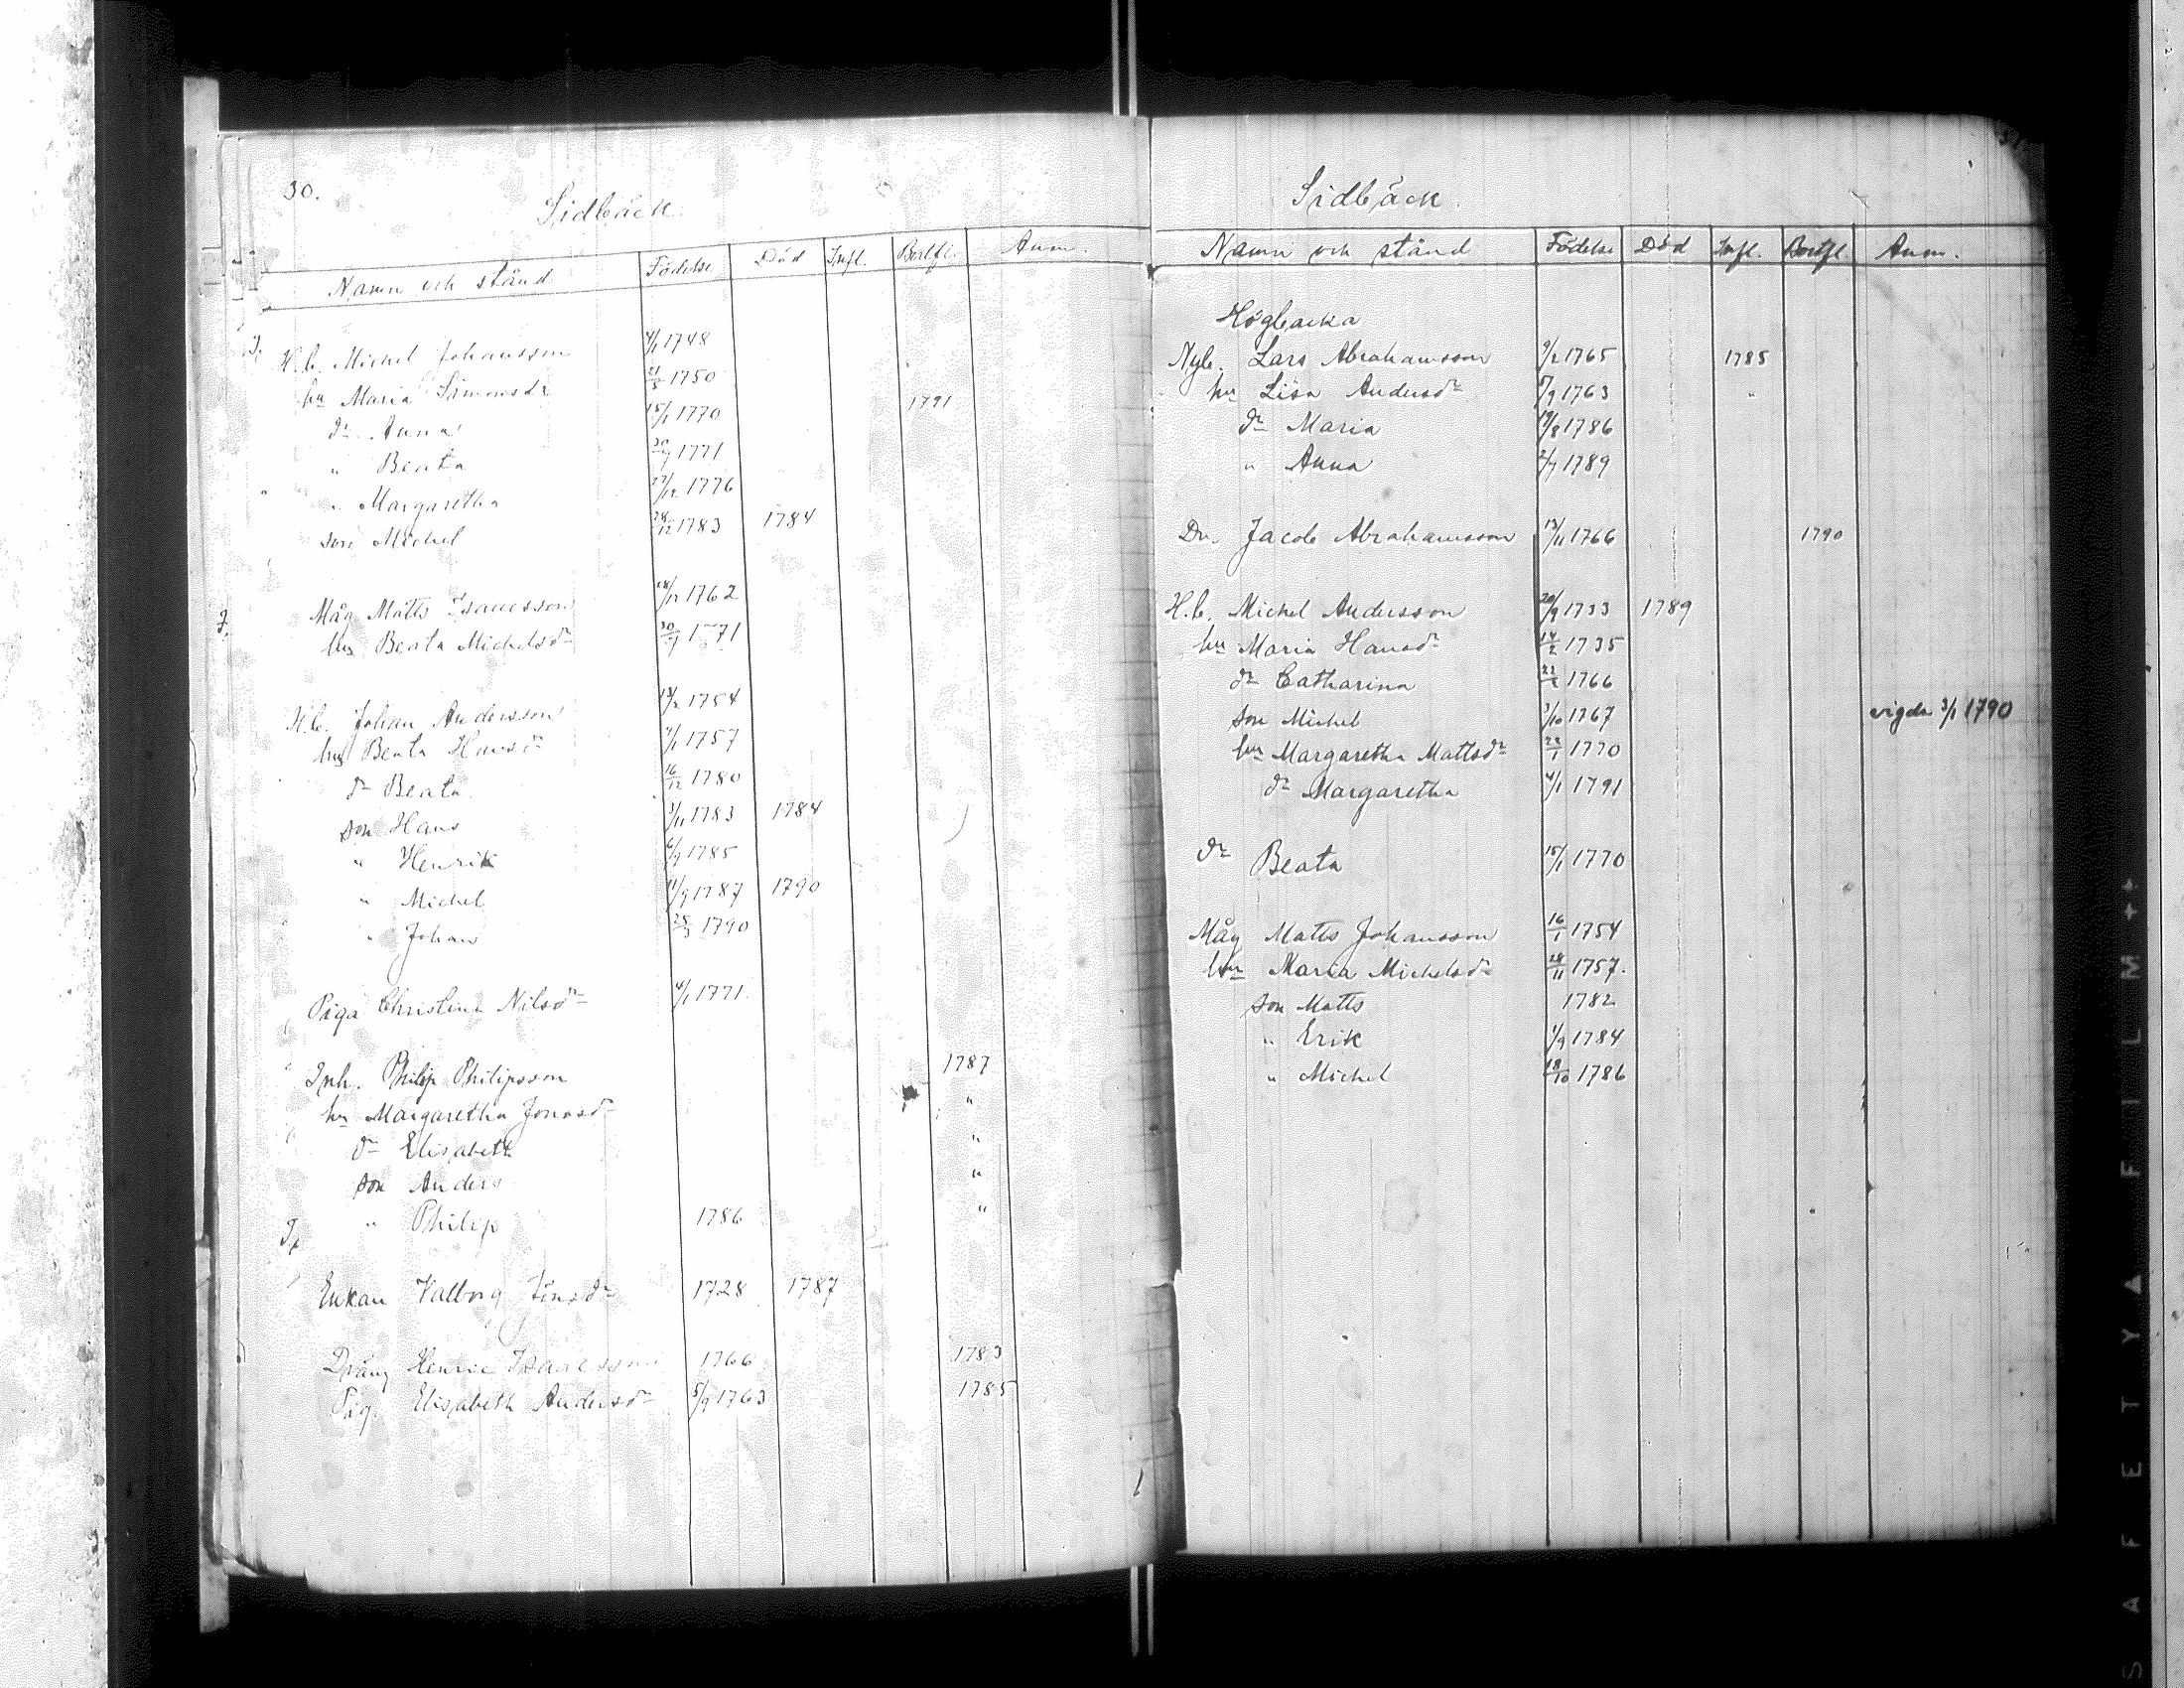 30.
Sidbäck.
Namn och stånd Födelse Död Infl. Bortfl. Anm.
H.b. Michel Johansson 4/1 1748
hu Maria Simonsdr 21/5 1750
dr Anna 15/1 1770 1791
" Beata 30/7 1771
" Margaretha 17/12 1776
son Michel 28/12 1783 1784
Måg Matts Isaacsson 28/12 1762
hu Beata Michelsdr 30/7 1771
H.b. Johan Andersson 13/2 1754
hu Beata Hansdr 7/1 1757
dr Beata 16/12 1780
son Hans 3/11 1783 1784
" Henrik 6/7 1785
" Michel 11/9 1787 1790
" Johan 25/3 1790
Piga Christina Nilsdr 4/1 1771.
Inh. Philip Philipsson 1787
hu Margaretha Jonasdr "
dr Elisabeth "
son Anders "
" Philip 1786 "
Enkan Valborg Jönsdr 1728 1787
Dräng Henric Isaacsson 1766 1783
Pig. Elisabeth Andersdr 5/9 1763 1785
Sidbäck.
Namn och stånd Födelse Död Infl. Bortfl. Anm.
Högbacka
Nyb. Lars Abrahamsson 9/2 1765 1785
hu Lisa Andersdr 5/9 1763 "
dr Maria 19/8 1786
" Anna 2/7 1789
Dr. Jacob Abrahamsson 13/11 1766 1790
H.b. Michel Andersson 20/9 1733 1789
hu Maria Hansdr 14/2 1735
dr Catharina 1766
son Michel 3/10 1767 vigda 3/1 1790
hu Margaretha Mattsdr 22/1 1770
dr Margaretha 4/1 1791
dr Beata 15/1 1770
Måg Matts Johansson 16/1 1754
hu Maria Michelsdr 28/11 1757.
son Matts 1782
" Erik 1/9 1784
" Michel 18/10 1786
SAFETY FILM